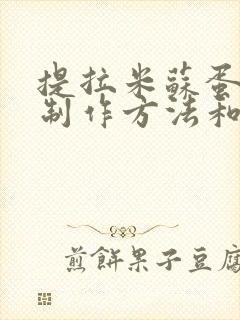 提拉米蘇蛋
制作方法和
煎餅果子豆腐